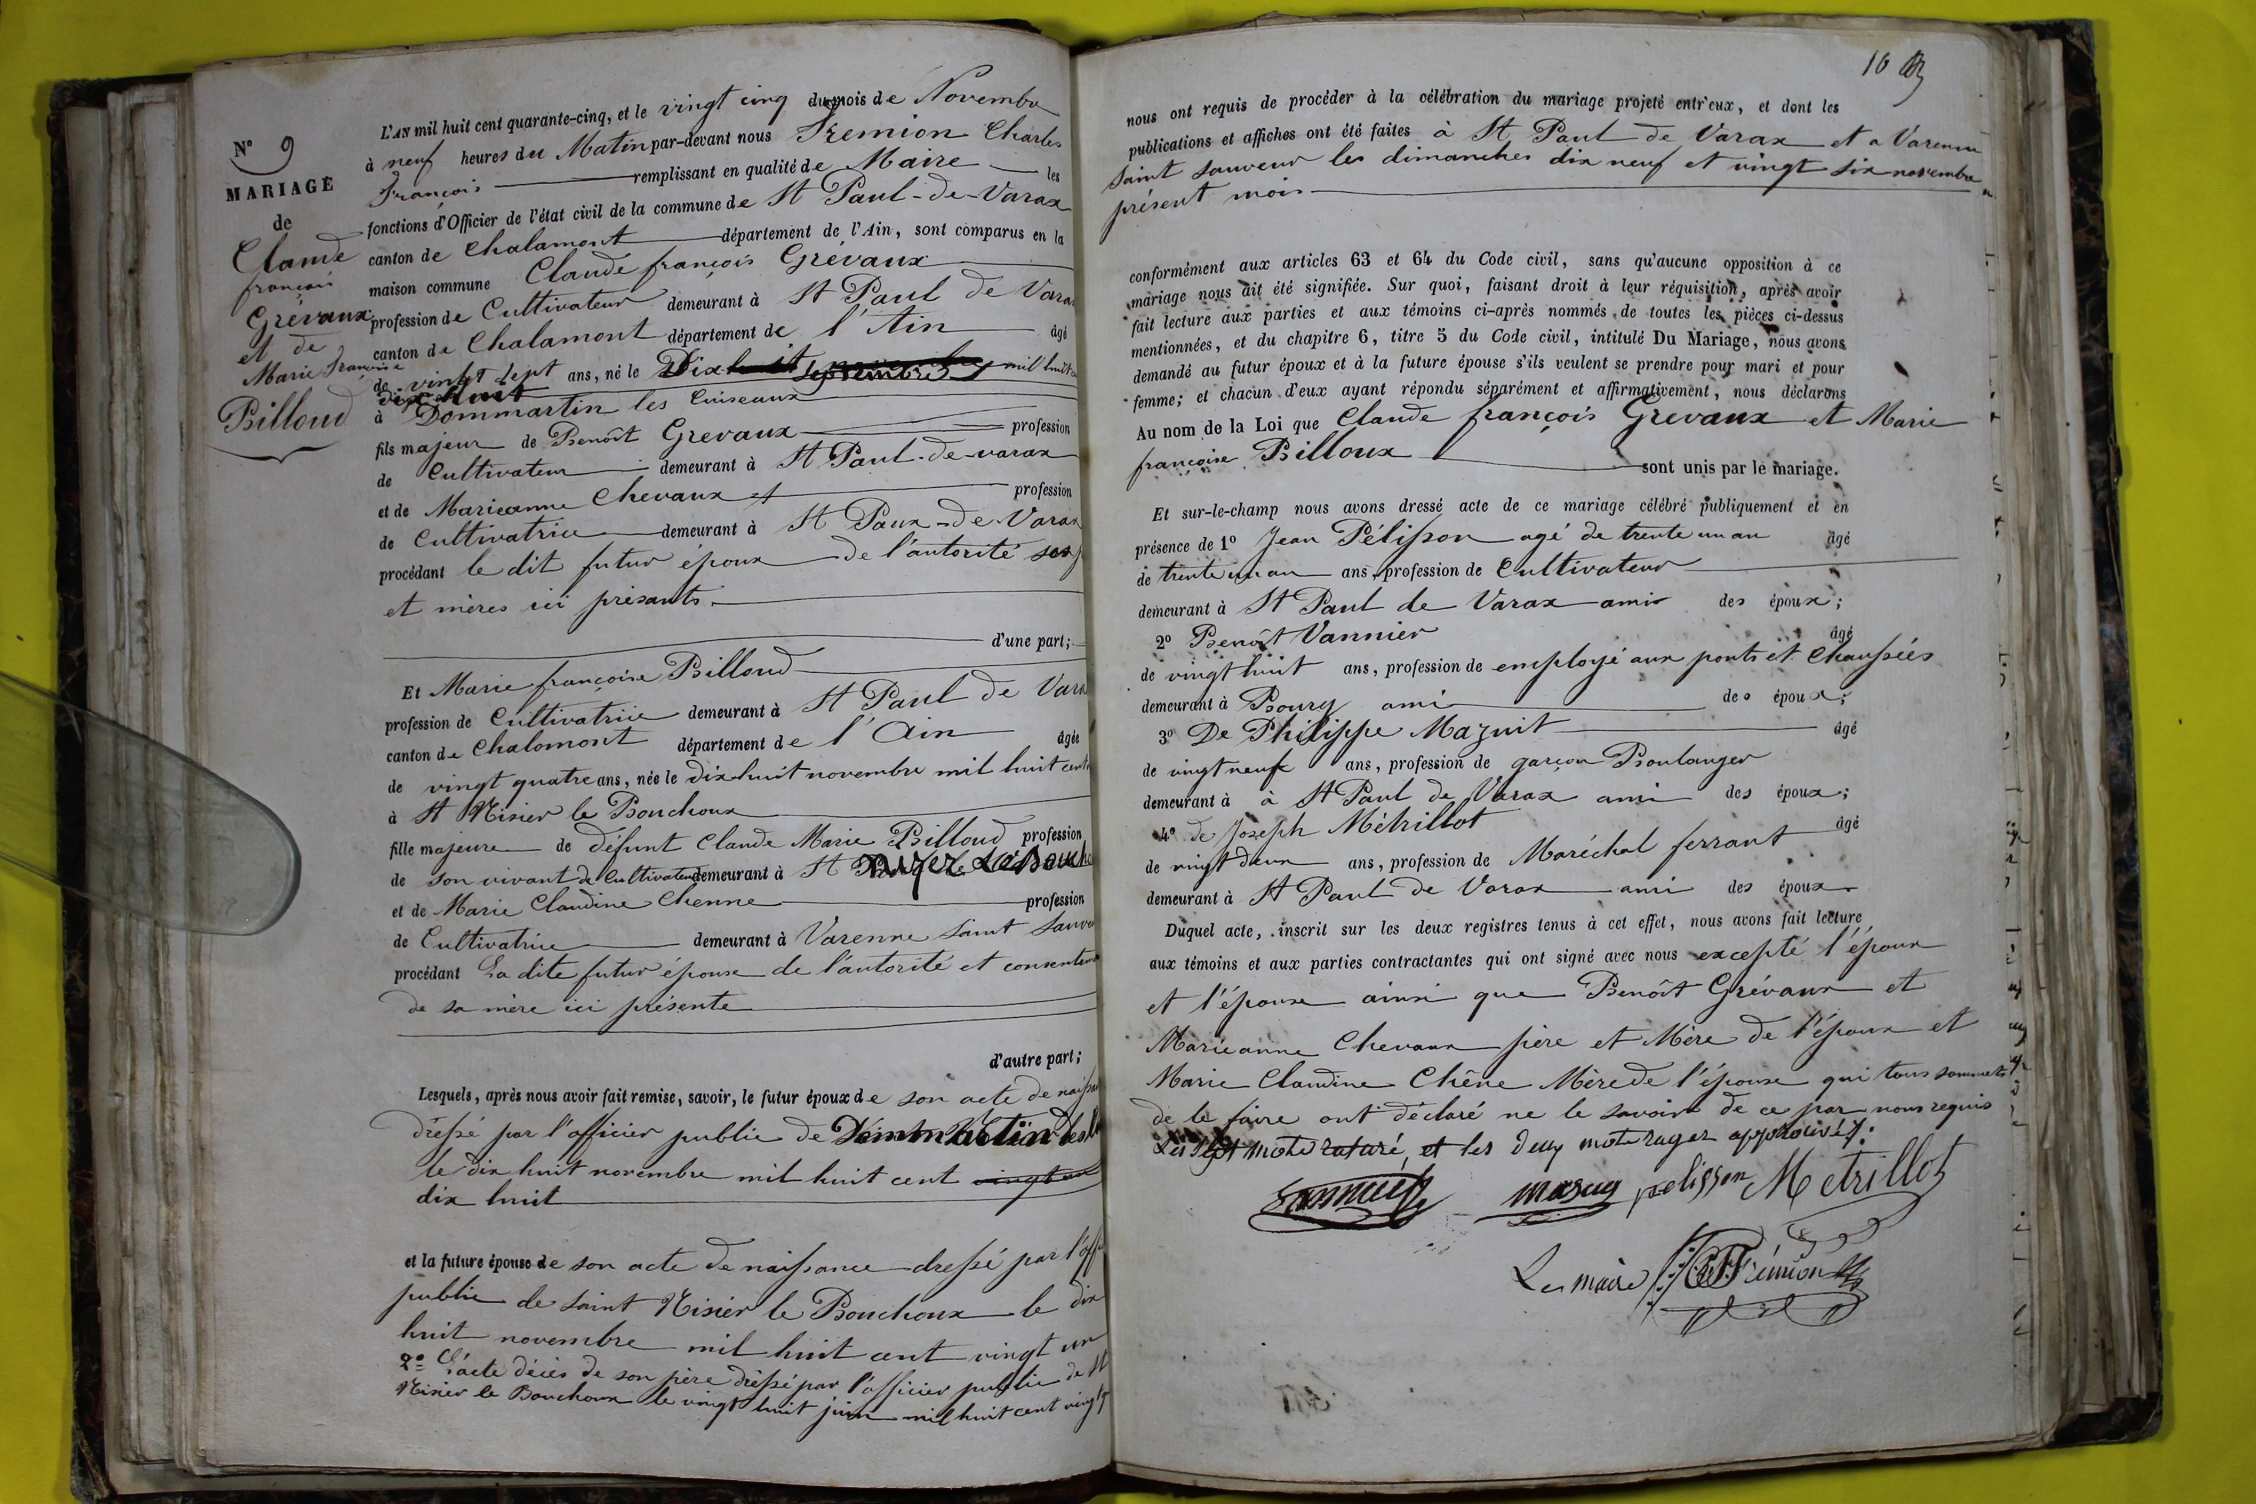 N° 9
MARIAGE
de
Claude
françois
Grévaux
et de
Marie françoise
Billoud
L'AN mil huit cent quarante-cinq, et le vingt cinq du mois de Novembre
à neuf heures du Matin par-devant nous Fremion Charles
François remplissant en qualité de Maire les
fonctions d'Officier de l'état civil de la commune de St Paul-de-Varax
canton de Chalamont département de l'Ain, sont comparus en la
maison commune Claude françois Grévaux
profession de Cultivateur demeurant à St Paul de Varax
canton de Chalamont département de l'Ain âgé
de vingt sept ans, né le Dix huit septembre mil huit
dix huit
à Dommartin les Cuiseaux
fils majeur de Benoît Grevaux profession
de Cultivateur demeurant à St Paul-de-varax
et de Marieanne Chevaux et profession
de Cultivatrice demeurant à St Paux-de Varax
procédant le dit futur époux de l'autorité ses
et mères ici présants.
d'une part;
Et Marie françoise Billoud
profession de Cultivatriie demeurant à St Paul de Vara
canton de Chalomont département de l'Ain âgée
de vingt quatre ans, née le dix huit novembre mil huit cent
à St Nisier le Bouchoux
fille majeure de défunt Claude Marie Billoud profession
de son vivant de Cultivateur demeurant à St
et de Marie Claudine Chenne profession
de Cultivatrice demeurant à Varenne Saint Sauveu
procédant La dite futur épouse de l'autorité et consentem
de sa mère ici présente
d'autre part;
Lesquels, après nous avoir fait remise, savoir, le futur époux de son acte de naissan
dressé par l'officier public de Dommartin les
le dix huit novembre mil huit cent vingt un
dix huit
et la future épouse de son acte de naissance dressé par l'offi
public de saint Nisier le Bouchoux le dix
huit novembre mil huit cent vingt un
2° L'acte décès de son père dressé par l'officier public de St
Nisier le Bouchoux le vingt huit juin mil huit cent vingt
16
nous ont requis de procéder à la célébration du mariage projeté entr'eux, et dont les
publications et affiches ont été faites à St Paul de Varax et a Varenne
Saint Sauveur les dimanches dix neuf et vingt six novembre
présent mois
conformément aux articles 63 et 64 du Code civil, sans qu'aucune opposition à ce
mariage nous ait été signifiée. Sur quoi, faisant droit à leur réquisition, après avoir
fait lecture aux parties et aux témoins ci-après nommés de toutes les pièces ci-dessus
mentionnées, et du chapitre 6, titre 5 du Code civil, intitulé Du Mariage, nous avons
demandé au futur époux et à la future épouse s'ils veulent se prendre pour mari et pour
femme; et chacun d'eux ayant répondu séparément et affirmativement, nous déclarons
Au nom de la Loi que Claude françois Grevaux et Marie
françoise Billoux sont unis par le mariage.
Et sur-le-champ nous avons dressé acte de ce mariage célébré publiquement et en
présence de 1° Jean Pélisson agé de trente un an âgé
de trente un an ans, profession de Cultivateur
demeurant à St Paul de Varax amis des époux;
2° Benoît Vannier âgé
de vingt huit ans, profession de employé aux ponts et Chaussées
demeurant à Bourg ami des époux;
3° De Philippe Mazuit âgé
de vingt neuf ans, profession de garçon Boulanger
demeurant à à St Paul de Varax ami des époux;
4° de Joseph Métrillot âgé
de vingt deux ans, profession de Maréchal ferrant
demeurant à St Paul de Varax ami des époux
Duquel acte, inscrit sur les deux registres tenus à cet effet, nous avons fait lecture
aux témoins et aux parties contractantes qui ont signé avec nous excepté l'époux
et l'épouse ainsi que Benoît Grévaux et
Marieanne Chevaux père et Mère de l'époux et
Marie Claudine Chêne Mère de l'épouse qui tous sommets
de le faire ont déclaré ne le savoir de ce par nous requis
Les sept mots raturé, et les deux mots rayer approuvés.
pelisson Metrillot
Le maire Frémion